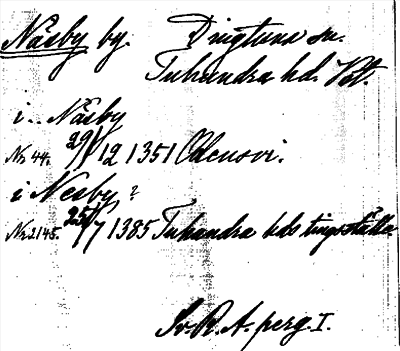 Näsby by. Dingtuna sn.
Tuhundra hd. Vst.
i.. Näsby
Nr 44. 29/12 1351 Odensvi.
i Nesby ?
Nr 2145. 25/7 1385 Tuhundra hds tingsställe
Sv. R. A. perg. I.